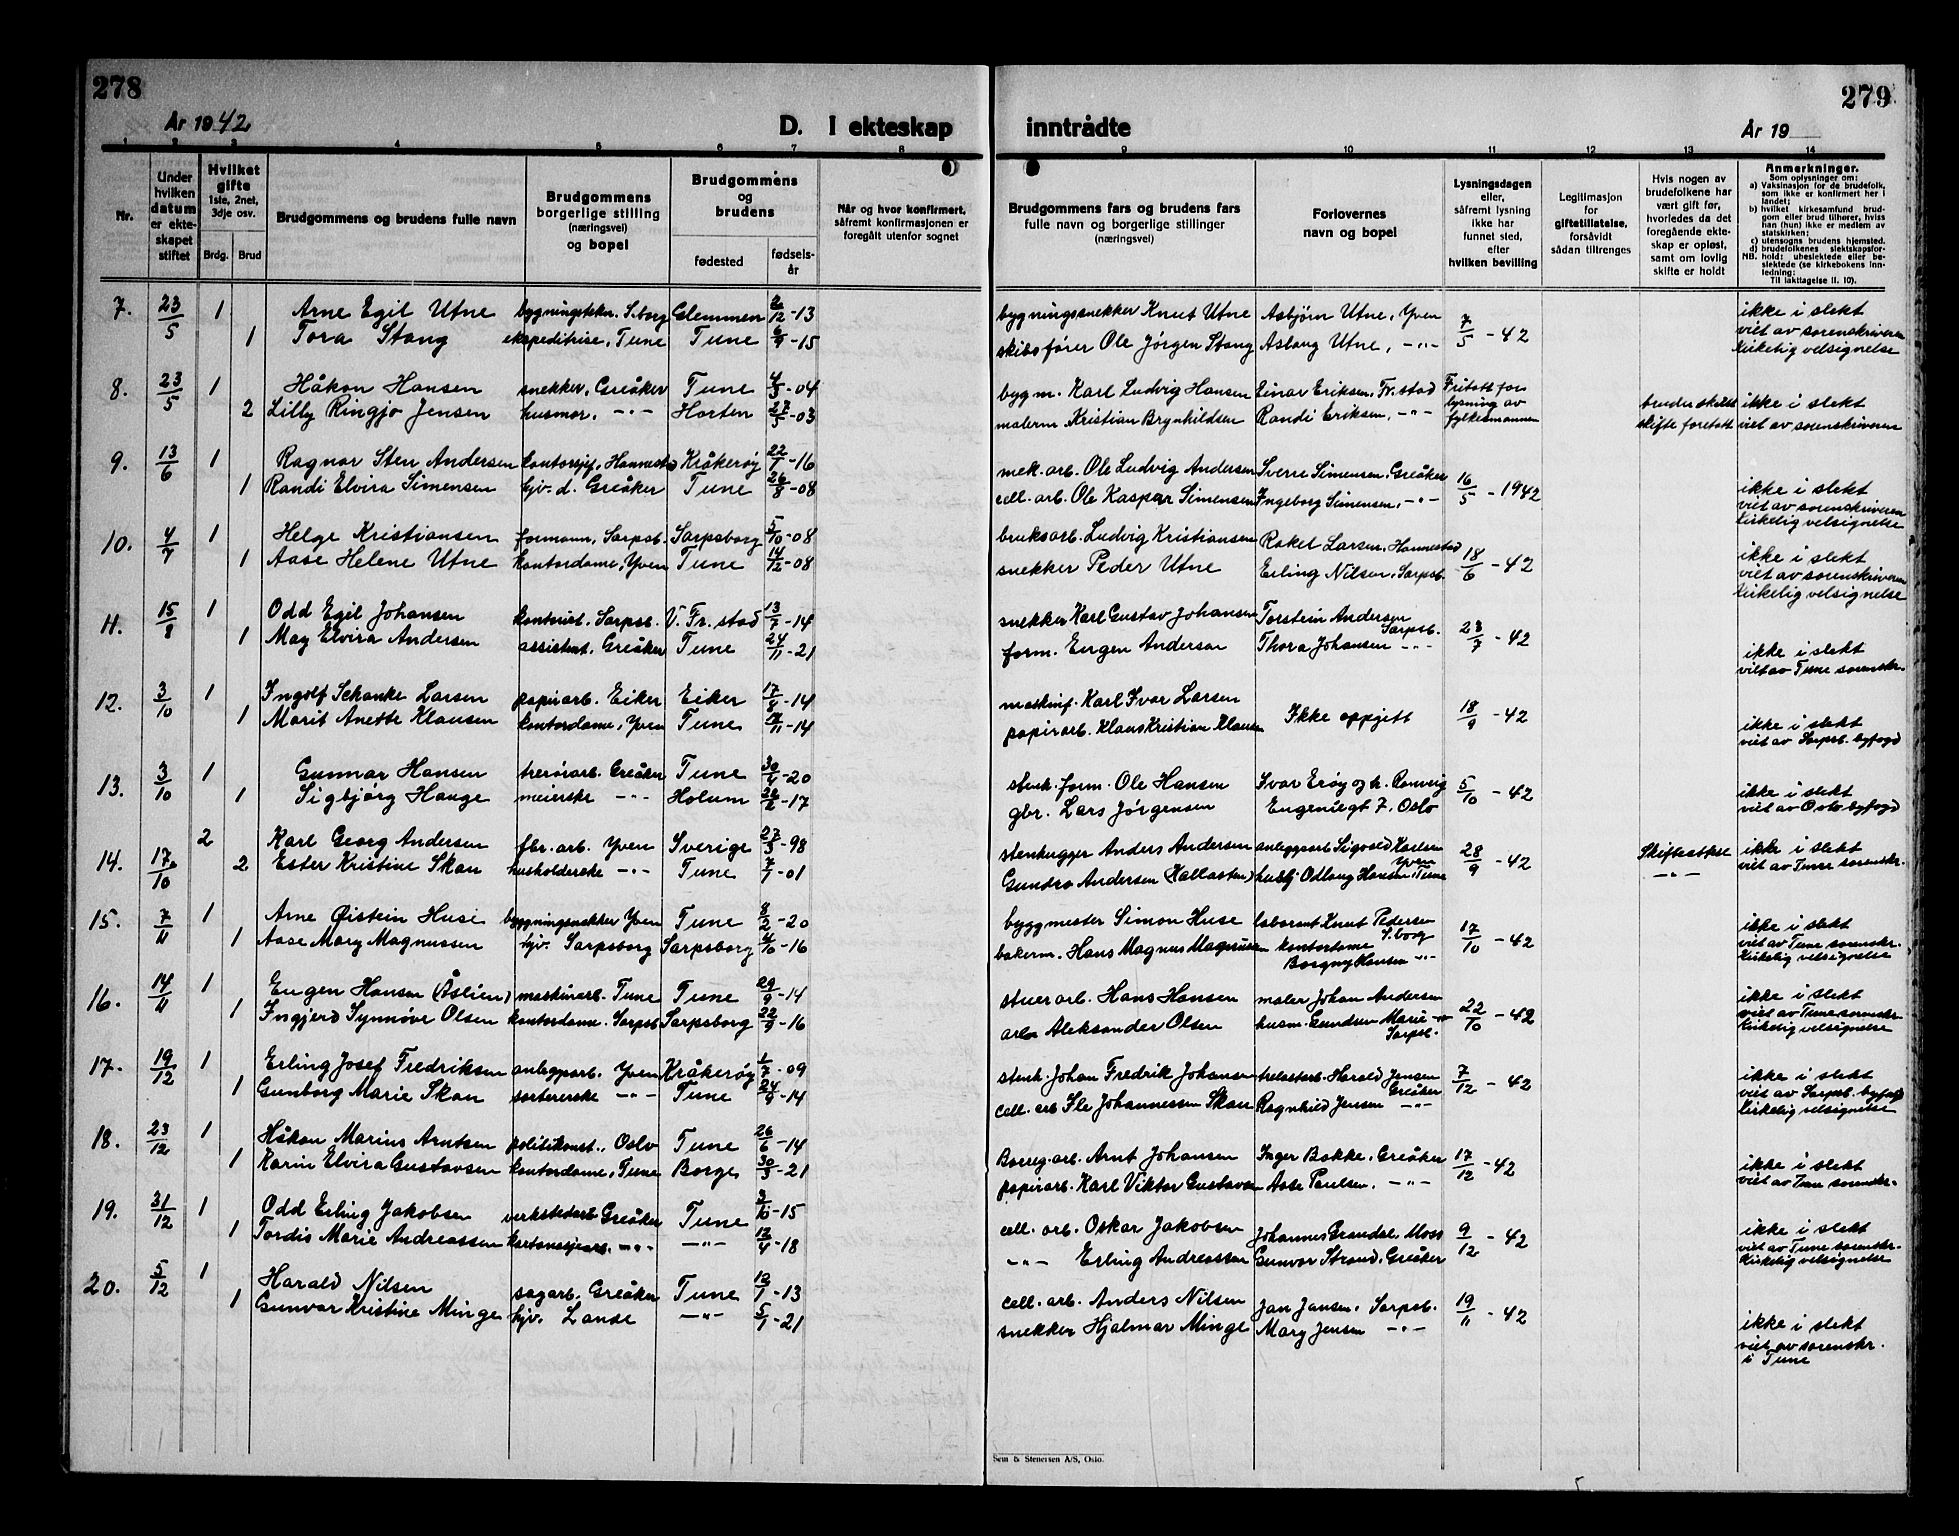 278
År 1942
D. I ekteskap
1 2 3 4 5 6 7 8
Nr.
Under hvilken datum er ekteskapet stiftet
Hvilket gifte 1ste, 2net, 3dje osv.
Brdg. Brud
Brudgommens og brudens fulle navn
Brudgommens borgerlige stilling (næringsvei) og bopel
Brudgommens og brudens
fødested
fødselsår
Når og hvor konfirmert, såfremt konfirmasjonen er foregått utenfor sognet
7. 23/5 1 Arne Egil Utne bygningstekn. S.borg Glemmen 2/12-13
1 Tora Stang ekspeditrise, Tune Tune 6/9-15
8. 23/5 1 Håkon Hansen snekker, Greåker Tune 4/3-04
2 Lilly Ringjo Jensen husmor, -"- Horten 27/5-03
9. 13/6 1 Ragnar Sten Andersen Kråkerøy 22/1-16
1 Randi Elvira Simensen hjv. d. Greåker Tune 26/8-08
10. 4/7 1 Helge Kristiansen formann, Sarpsb. Sarpsborg 5/10-08
1 Aase Helene Utne kontordame, Yven Tune 14/12-08
11. 15/8 1 Odd Egil Johansen kontorist. Sarpsb. V. Fr.stad 13/7-14
1 May Elvira Andersen assistent. Greåker Tune 24/11-21
12. 3/10 1 Ingolf Schanke Larsen papirarb. Eiker Eiker 17/8-14
1 Marit Anette Klausen kontordame, Yven Tune -14
13. 3/10 1 Gunnar Hansen Greåker Tune 30/4-20
1 Sigbjørg Hauge meierske -"- Holum 26/2-17
14. 17/10 2 Karl Georg Andersen fbr. arb. Yven Sverige 27/3-98
2 Ester Kristine Skau husholderske -"- Tune 7/1-01
15. 7/11 1 Arne Øistein Huse bygningsnekker Yven Tune 8/2-20
1 Aase Mary Magnussen hjv. Sarpsborg Sarpsborg 4/10-16
16. 14/11 1 Eugen Hansen (Åslien) maskinarb. Tune Tune 29/9-14
1 Ingjerd Synnøve Olsen kontordame. Sarpsb Sarpsborg 22/9-16
17. 19/12 1 Erling Josef Fredriksen anleggsarb. Yven Kråkerøy 1/7-09
1 Gunborg Marie Skau sortererske -"- Tune 24/9-14
18. 23/12 1 Håkon Marius Arntsen politikonst., Oslo Tune 26/6-14
1 Karin Elvira Gustavsen kontordame, Tune Borge 30/3-21
19. 31/12 1 Odd Erling Jakobsen verkstedarb Greåker Tune 3/10-15
1 Tordis Marie Andreassen kartonasjearb. -"- -"- 12/4-18
20. 5/12 1 Harald Nilsen sagarb. Greåker Tune 12/1-13
1 Gunvor Kristine Minge hjv. Lande -"- 5/1-21
279
inntrådte
År 19
9 10 11 12 13 14
Brudgommens fars og brudens fars fulle navn og borgerlige stillinger (næringsvei)
Forlovernes navn og bopel
Lysningsdagen eller, såfremt lysning ikke har funnet sted, efter hvilken bevilling
Legitimasjon for giftetillatelse, forsåvidt sådan tiltrenges
Hvis nogen av brudefolkene har vært gift før, hvorledes da det foregående ekteskap er opløst, samt om lovlig skifte er holdt
Anmerkninger.
Som oplysninger om:
a) Vaksinasjon for de brudefolk, som ikke er konfirmert her i landet;
b) hvilket kirkesamfund brudgom eller brud tilhører, hviss han (hun) ikke er medlem av statskirken;
c) utensogns brudens hjemsted.
d) brudefolkenes slektskapsforhold: ubeslektede eller beslektede (se kirkebokens innledning;
NB.
Til iakttagelse II. 10).
bygningssnekker Knut Utne Asbjørn Utne, Yven 7/5-42 ikke i slekt
skibsfører Ole Jørgen Stang Aslaug Utne, -"- viet av sorenskriveren
Kirkelig velsignelse
bygm. Karl Ludvig Hansen Einar Eriksen, Fr.stad Fritatt for lysning av fylkesmannen ikke i slekt
malerm. Kristian Brynhildsen Randi Eriksen, -"- bruden skilt skifte foretatt viet av sorenskriveren
mek. arb. Ole Ludvig Andersen Sverre Simensen, Greåker 16/5-1942 ikke i slekt
cell. arb. Ole Kaspar Simensen Ingeborg Simensen, -"- viet av sorenskriveren
kirkelig velsignelse
bruksarb. Ludvig Kristiansen Rakel Larsen, Hannestad 18/6-42 ikke i slekt
snekker Peder Utne Erling Nilsen, Sarpsb. viet av sorenskriveren
kirkelig velsignelse
snekker Karl Gustav Johansen Torstein Andersen Sarpsb. 23/7-42 ikke i slekt
form. Eugen Andersen Thora Johansen -"- viet av Tune sorenskr.
maskinf. Karl Ivar Larsen Ikke oppgitt 18/9-42 ikke i slekt
papirarb. Klaus Kristian Klausen viet av Sarpsb. byfogd
stenh. form. Ole Hansen Ivar Erøy og h. Ronveig 5/10-42 ikke i slekt
gbr. Lars Jørgensen Eugeniegt 7, Oslo viet av Oslo byfogd
stenhugger Anders Andersen anleggsarb Sigvald Karlsen Yven 28/9-42 Skifteattest ikke i slekt
Gundro Andersen (Kallasten) husbj. Odlaug Hansen, Tune -"- viet av Tune sorenskr.
byggmester Simon Huse laborant Knut Pedersen S.borg 17/10-42 ikke i slekt
bakerm. Hans Magnus Magnussen kontordame Borgny Hansen -"- viet av Tune sorenskr.
Kirkelig velsignelse
stuerarb. Hans Hansen maler Johan Andersen 22/10-42 ikke i slekt
arb. Aleksander Olsen husm. Gundsen Marie Sarpsb. viet av Tune sorenskr.
Kirkelig velsignelse
stenh. Johan Fredrik Johansen trelastarb. Harald Jensen Greåker 7/12-42 ikke i slekt
cell. arb Ile Johannessen Skau Ragnhild Jensen -"- viet av Sarpsb. byfogd
Kirkelig velsignelse
Borreg. arb. Arnt Johansen Inger Bakke, Greåker 17/12-42 ikke i slekt
papirarb. Karl Viktor Gustavsen Aase Paulsen, -"- viet av Tune sorenskr.
cell. arb. Oskar Jakobsen Johannes Grandal, Moss 9/12-42 ikke i slekt
-"- Erling Andreassen Gunvor Strand, Greåker viet av Tune sorenskr.
Kirkelig velsignelse
cell. arb. Anders Nilsen Jan Jansen, Sarpsb. 19/11-42 ikke i slekt
snekker Hjalmar Minge Mary Jensen -"- viet av sorenskr.
i Tune
Sem & Stenersen A/S, Oslo.